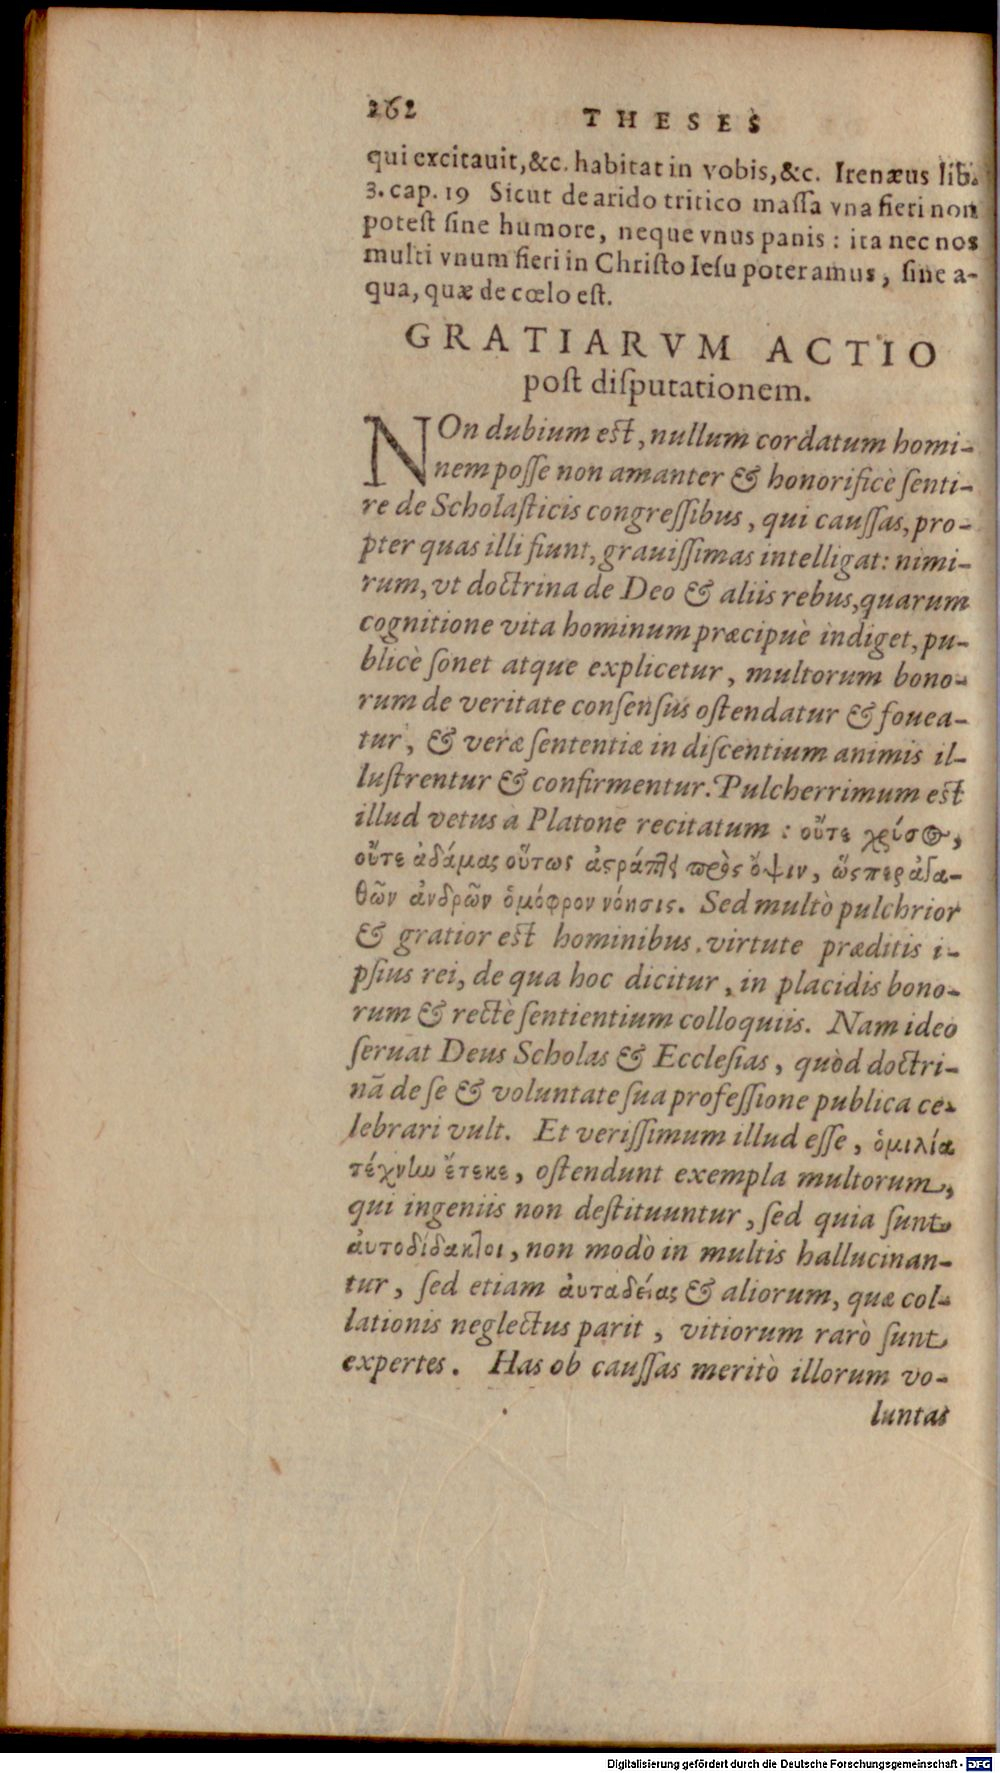 262 THESES
qui excitauit, &c. habitat in vobis, &c. Irenæus lib.
3. cap. 19 Sicut de arido tritico maſſa vna fieri non
poteſt ſine humore, neque vnus panis : ita nec nos
multi vnum fieri in Chriſto Ieſu poteramus, ſine a-
qua, quæ de cœlo eſt.
GRATIARVM ACTIO
poſt diſputationem.
NOn dubium eſt, nullum cordatum homi-
nem poſſe non amanter & honorificè ſenti-
re de Scholaſticis congreſſibus, qui cauſſas, pro-
pter quas illi fiunt, grauiſſimas intelligat: nimi-
rum, vt doctrina de Deo & aliis rebus, quarum
cognitione vita hominum præcipuè indiget, pu-
blicè ſonet atque explicetur, multorum bono-
rum de veritate conſenſus oſtendatur & fouea-
tur, & veræ ſententiæ in diſcentium animis il-
luſtrentur & confirmentur. Pulcherrimum eſt
illud vetus a Platone recitatum : οὔτε χρύσος,
οὔτε ἀδάμας οὕτως ἀστράπτει πρὸς ὄψιν, ὥσπερ ἀγα-
θῶν ἀνδρῶν ὁμόφρον νόησις. Sed multò pulchrior
& gratior eſt hominibus virtute præditis i-
pſius rei, de qua hoc dicitur, in placidis bono-
rum & rectè ſentientium colloquiis. Nam ideo
ſeruat Deus Scholas & Eccleſias, quòd doctri-
nã de ſe & voluntate ſua profeſſione publica ce-
lebrari vult. Et veriſſimum illud eſſe, ὁμιλία
τέχνην ἔτεκε, oſtendunt exempla multorum,
qui ingeniis non deſtituuntur, ſed quia ſunt
ἀυτοδίδακτοι, non modò in multis hallucinan-
tur, ſed etiam ἀυταδείας & aliorum, quæ col-
lationis neglectus parit, vitiorum rarò ſunt
expertes. Has ob cauſſas meritò illorum vo-
luntas
Digitalisierung gefördert durch die Deutsche Forschungsgemeinschaft - DFG